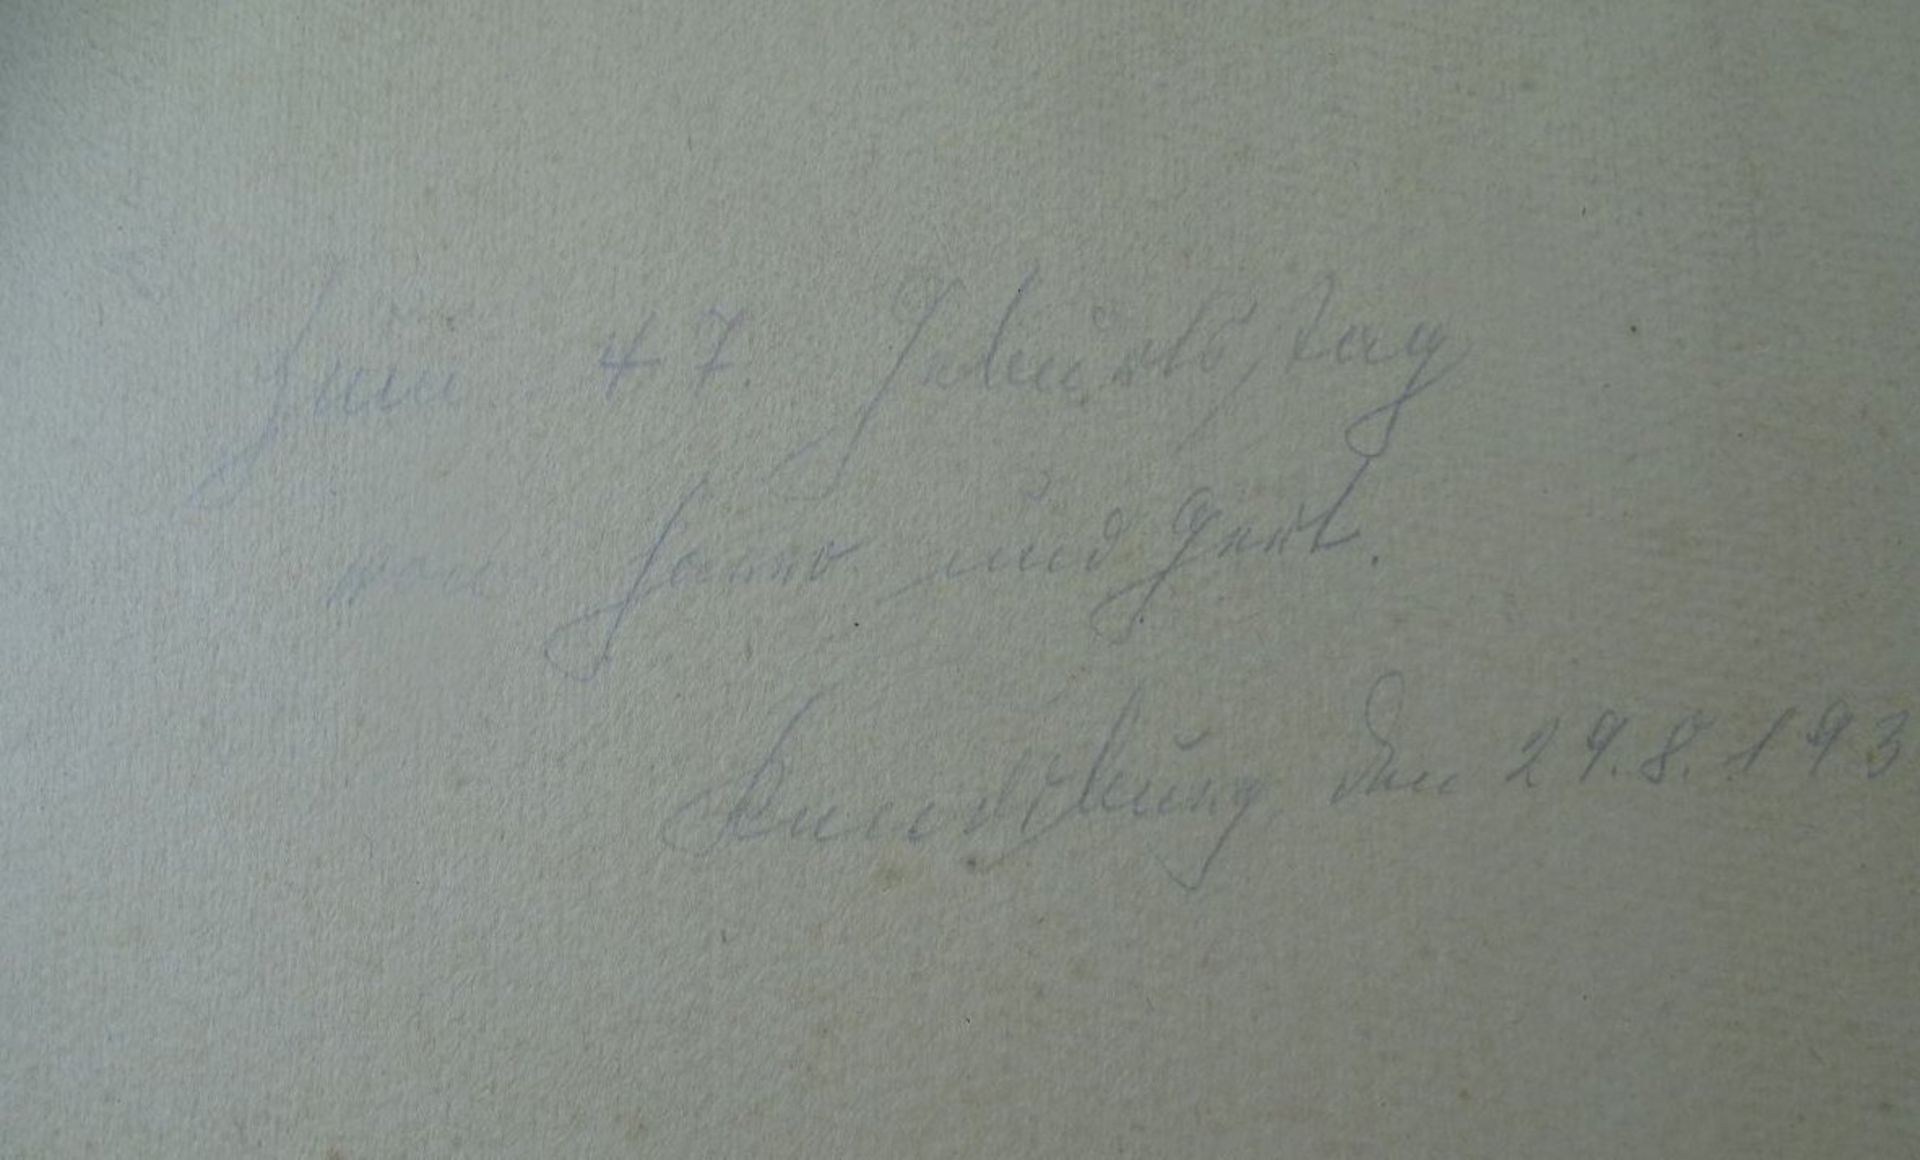 Zum 47. Geburtstag
von Hanno und Gert.
den 29.8.193